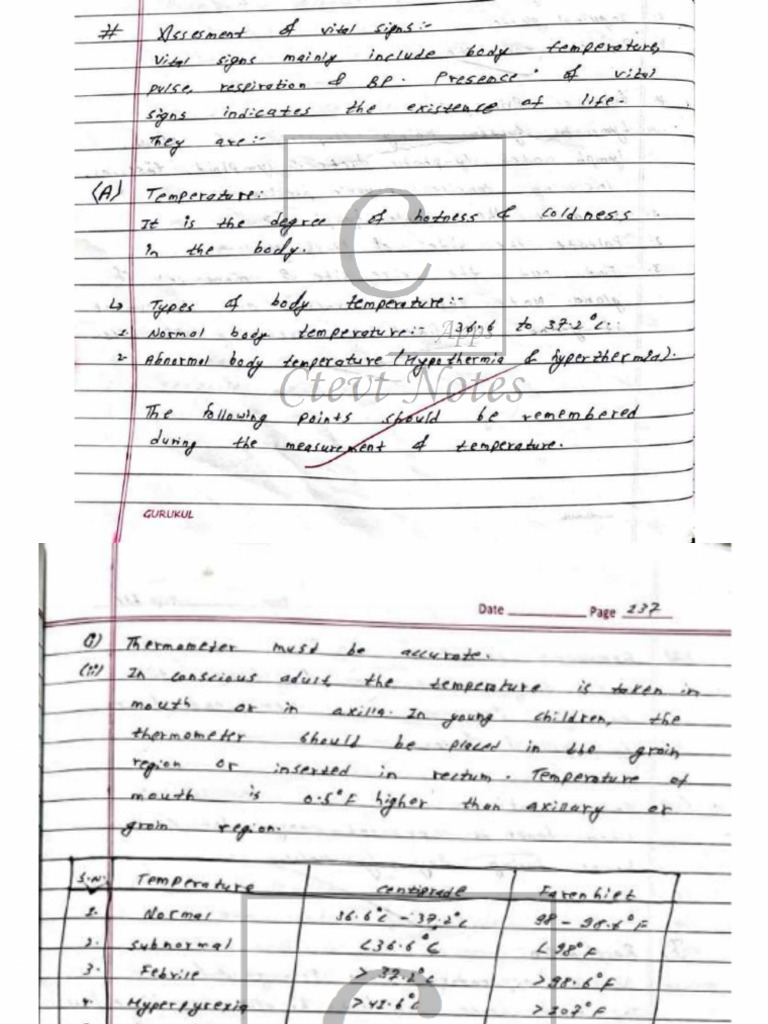 # Assesment of vital signs:-
Vital signs mainly include body temperature,
pulse, respiration & BP. Presence of vital
signs indicates the existence of life.
They are:-
(A) Temperature:
It is the degree of hotness & coldness
in the body.
↳ Types of body temperature:-
1. Normal body temperature:- 36.6 to 37.2°C.
2. Abnormal body temperature (Hypothermia & hyperthermia).
The following points should be remembered
during the measurement of temperature.
C
Apps
Ctevt Notes
GURUKUL
Date Page 237
(i) Thermometer must be accurate.
(ii) In conscious adult the temperature is taken in
mouth or in axilla. In young children, the
thermometer should be placed in the groin
region or inserted in rectum. Temperature of
mouth is 0.5°F higher than axillary or
groin region.
S.N. Temperature Centigrade Farenhiet
1. Normal 36.6°C - 37.2°C 98 - 98.6°F
2. Subnormal <36.6°C <98°F
3. Febrile >37.2°C >98.6°F
4. Hyperpyrexia >41.6°C >107°F
C